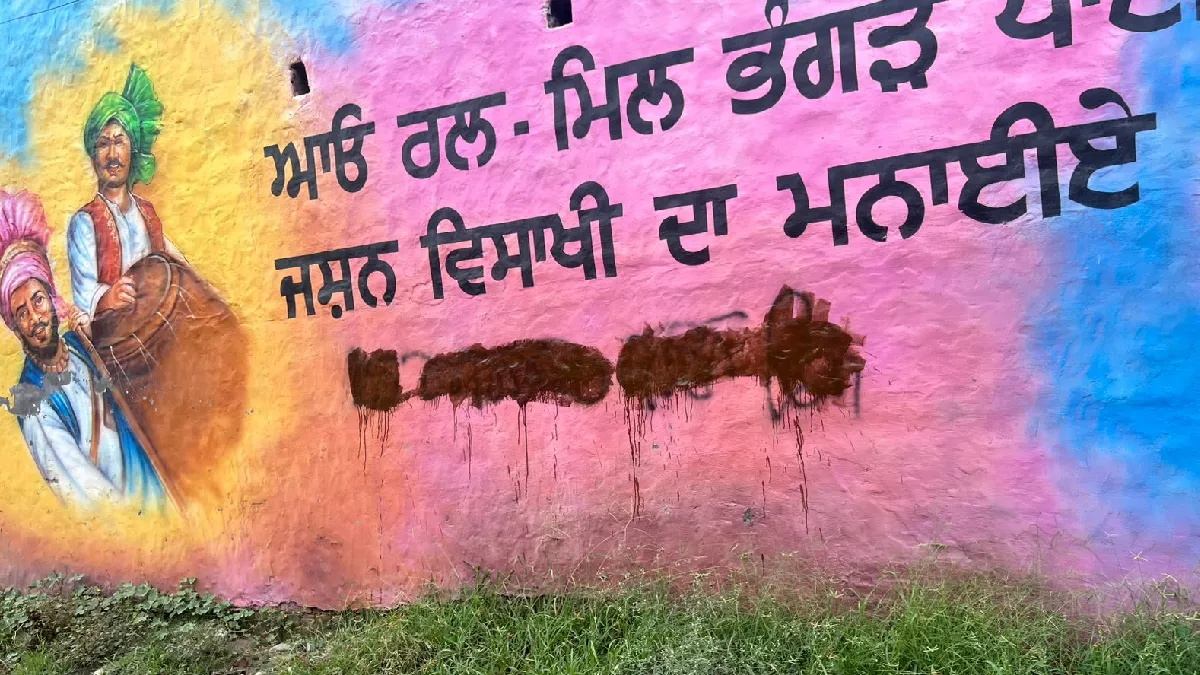 ਆਓ ਰਲ-ਮਿਲ ਭੰਗੜੇ ਪਾਈਏ
ਜਸ਼ਨ ਵਿਸਾਖੀ ਦਾ ਮਨਾਈਏ